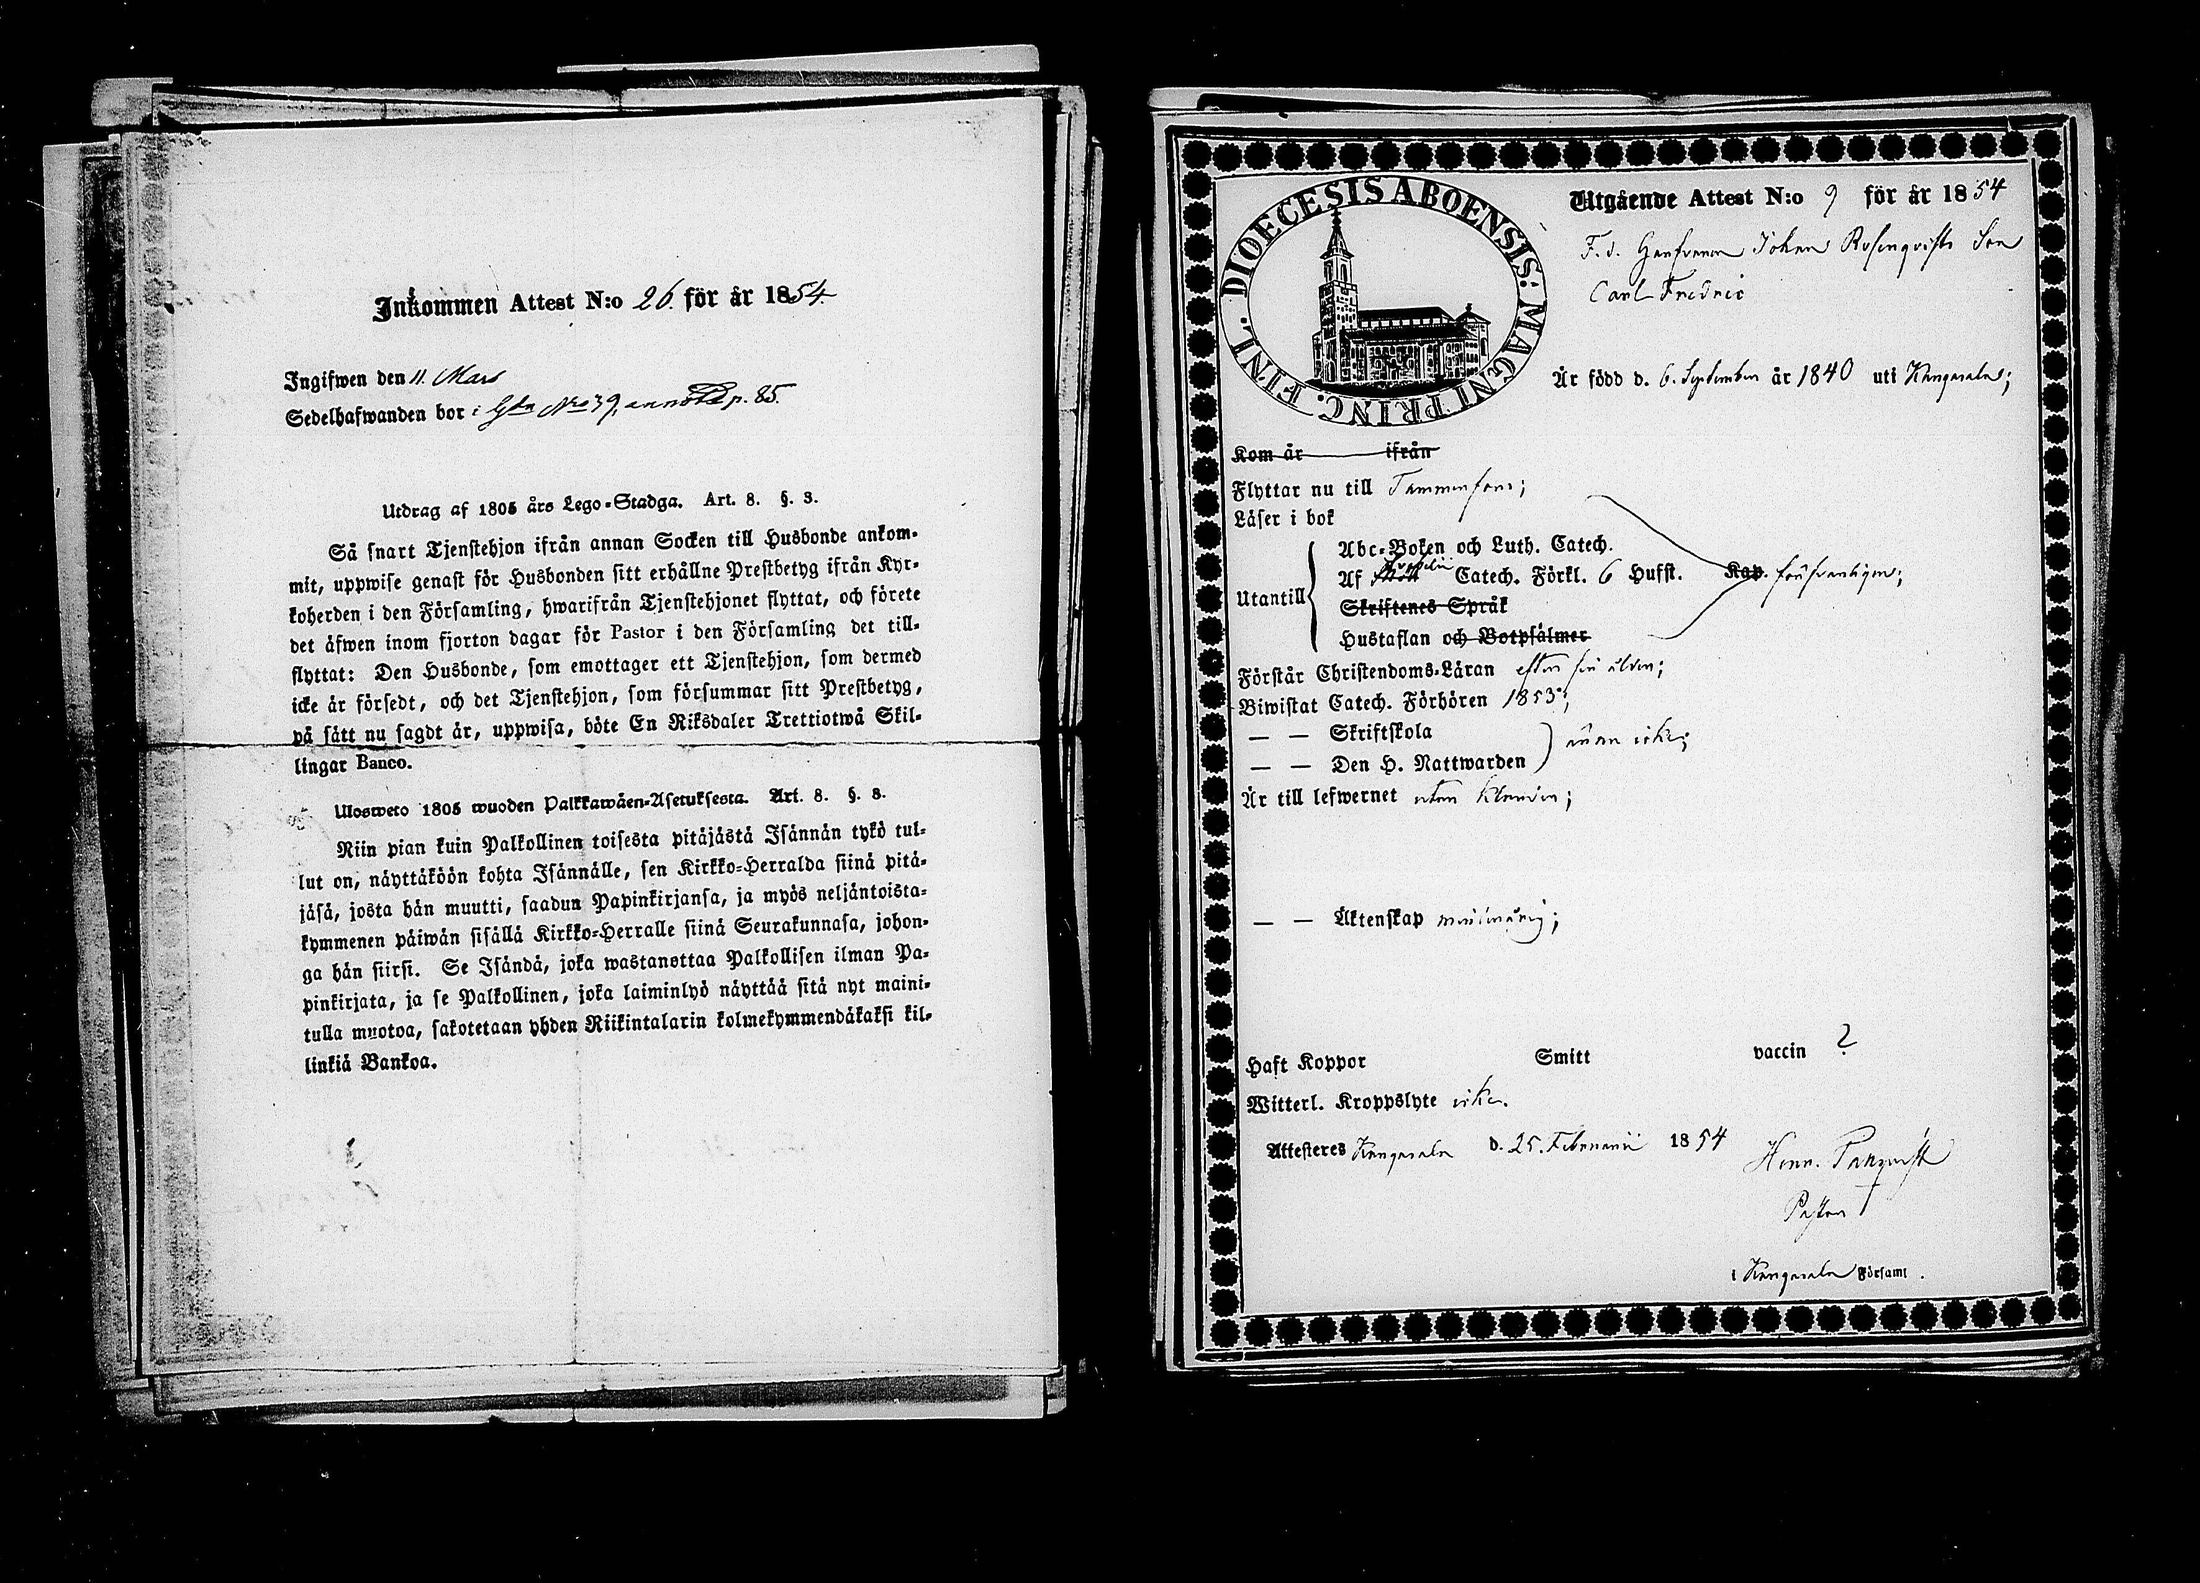 Inkommen Attest N:o 26. för år 1854
Ingifwen den 11. Mars
Sedelhafwanden bor i Gdn No 39, annot p. 85.
Utdrag af 1805 års Lego-Stadga. Art. 8. §. 3.
Så snart Tjenstehjon ifrån annan Socken till Husbonde ankom-
mit, uppwise genast för Husbonden sitt erhållne Prestbetyg ifrån Kyr-
koherden i den Församling, hwarifrån Tjenstehjonet flyttat, och förete
det äfwen inom fjorton dagar för Pastor i den Församling det till-
flyttat: Den Husbonde, som emottager ett Tjenstehjon, som dermed
icke är försedt, och det Tjenstehjon, som försummar sitt Prestbetyg,
på sätt nu sagdt är, uppwisa, böte En Riksdaler Trettiotwå Skil-
lingar Banco.
Ulosweto 1805 wuoden Palkkawäen-Asetuksesta. Art. 8. §. 3.
Niin pian kuin Palkollinen toisesta pitäjästä Isännän tykö tul-
lut on, näyttäköön kohta Isännälle, sen Kirkko-Herralda siinä pitä-
jäsä, josta hän muutti, saadun Papinkirjansa, ja myös neljäntoista-
kymmenen päiwän sisällä Kirkko-Herralle siinä Seurakunnasa, johon-
ga hän siirsi. Se Isändä, joka wastanottaa Palkollisen ilman Pa-
pinkirjata, ja se Palkollinen, joka laiminlyö näyttää sitä nyt maini-
tulla muotoa, sakotetaan yhden Riikintalarin kolmekymmendäkaksi kil-
linkiä Bankoa.
DIOECESIS ABOENSIS: MAGNI PRINC. FINL.
Utgående Attest N:o 9 för år 1854
F. d. Johan Rosenqvists Son
Carl Fredric
Är född d. 6. September år 1840 uti Kangasala;
Kom år ifrån
Flyttar nu till Tammerfors;
Läser i bok
Abc-Boken och Luth. Catech.
Utantill Af Catech. Förkl. 6 Hufst. Kap. försvarligen;
Skriftenes Språk
Hustaflan och Botpsalmer
Förstår Christendoms-Läran efter sin ålder;
Biwistat Catech. Förhören 1853;
— — Skriftskola
— — Den H. Nattwarden ännu icke;
Är till lefwernet utan klander;
— — Äktenskap minderårig;
Haft Koppor Smitt vaccin ?
Witterl. Kroppslyte icke.
Attesteres Kangasala d. 25. Februarii 1854
Pastor
i Kangasala Församl.